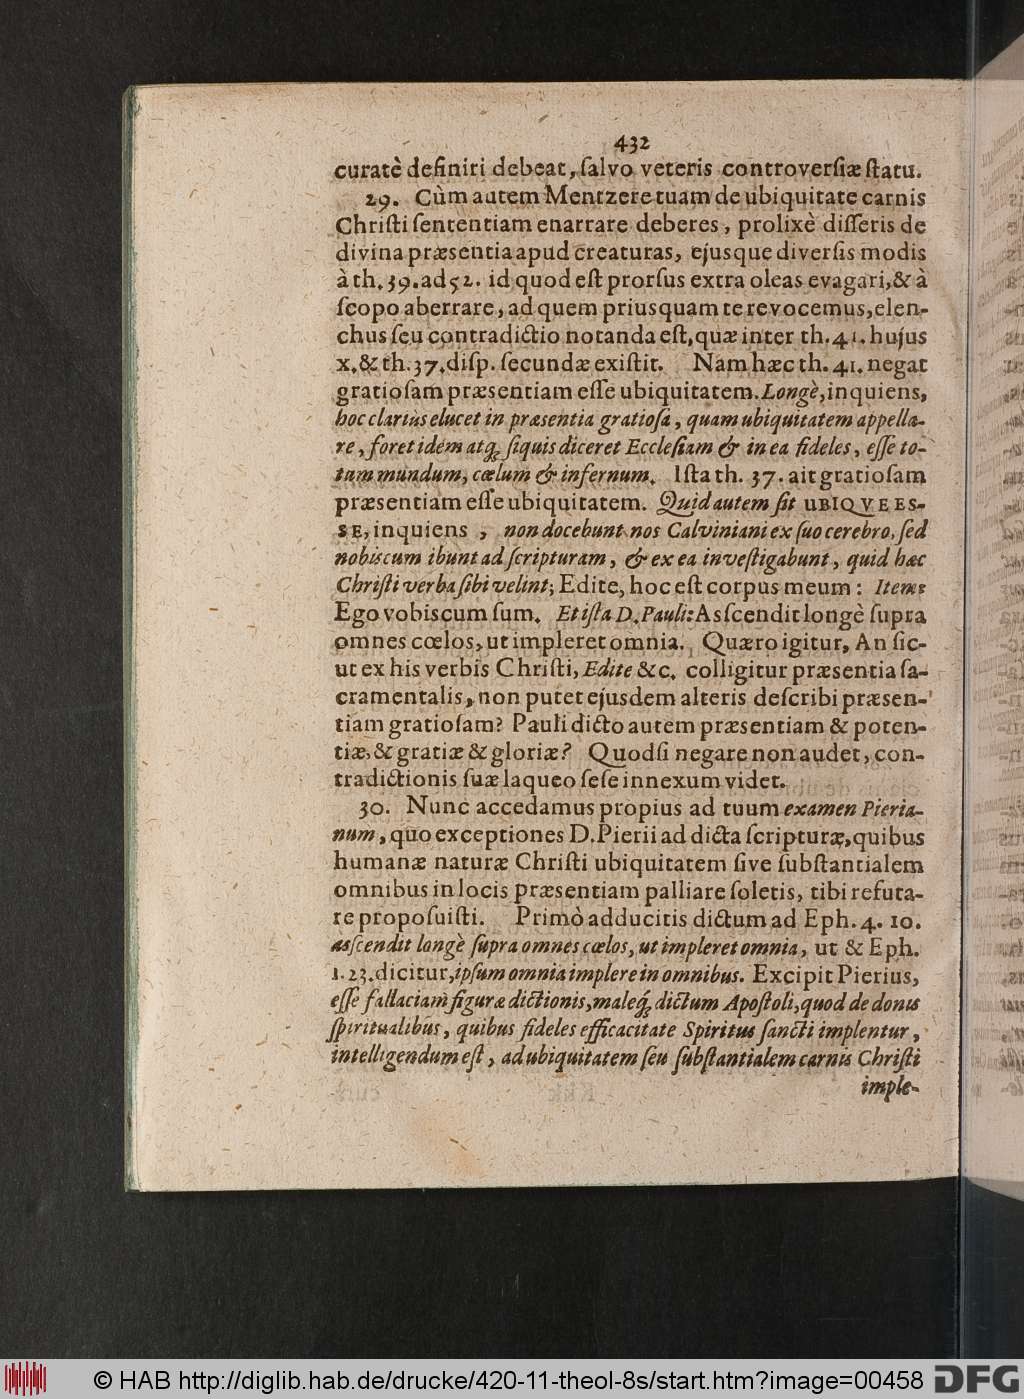 432
curatè definiri debeat, ſalvo veteris controverſiæ ſtatu.
29. Cùm autem Mentzere tuam de ubiquitate carnis
Chriſti ſententiam enarrare deberes, prolixè diſſeris de
divina præsentia apud creaturas, ejusque diverſis modis
à th. 39. ad 52. id quod eſt prorſus extra oleas evagari, & à
ſcopo aberrare, ad quem priusquam te revocemus, elen-
chus ſeu contradictio notanda eſt, quæ inter th. 41. hujus
x. & th. 37. diſp. ſecundæ exiſtit. Nam hæc th. 41. negat
gratioſam præsentiam eſſe ubiquitatem. Longè, inquiens,
hoc clariùs elucet in præsentia gratioſa, quam ubiquitatem appella-
re, foret idem atq; ſi quis diceret Eccleſiam & in ea fideles, eſſe to-
tum mundum, cœlum & infernum. Iſta th. 37. ait gratioſam
præsentiam eſſe ubiquitatem. Quid autem ſit UBIQVE ES-
SE, inquiens, non docebunt nos Calviniani ex ſuo cerebro, ſed
nobiscum ibunt ad ſcripturam, & ex ea inveſtigabunt, quid hæc
Chriſti verba ſibi velint; Edite, hoc eſt corpus meum: Item:
Ego vobiscum ſum. Et iſta D. Pauli: Asſcendit longè ſupra
omnes cœlos, ut impleret omnia. Quæro igitur, An ſic-
ut ex his verbis Chriſti, Edite &c. colligitur præsentia ſa-
cramentalis, non putet ejusdem alteris deſcribi præsen-
tiam gratioſam? Pauli dicto autem præsentiam & poten-
tiæ, & gratiæ & gloriæ? Quodſi negare non audet, con-
tradictionis ſuæ laqueo ſeſe innexum videt.
30. Nunc accedamus propius ad tuum examen Pieria-
num, quo exceptiones D. Pierii ad dicta ſcripturæ, quibus
humanæ naturæ Chriſti ubiquitatem ſive ſubſtantialem
omnibus in locis præsentiam palliare ſoletis, tibi refuta-
re propoſuiſti. Primò adducitis dictum ad Eph. 4. 10.
asſcendit longè ſupra omnes cœlos, ut impleret omnia, ut & Eph.
1. 23. dicitur, ipſum omnia implere in omnibus. Excipit Pierius,
eſſe fallaciam figuræ dictionis, maleq; dictum Apoſtoli, quod de donis
ſpiritualibus, quibus fideles efficacitate Spiritus ſancti implentur,
intelligendum eſt, ad ubiquitatem ſeu ſubſtantialem carnis Chriſti
imple-
© HAB http://diglib.hab.de/drucke/420-11-theol-8s/start.htm?image=00458
DFG